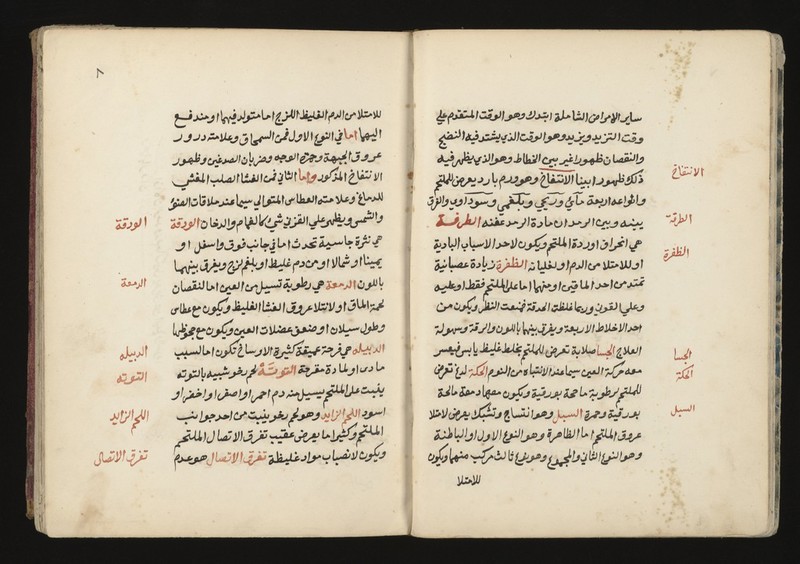 ساير الامراض الشاملة ابتدا وهو الوقت المتقدم علي
وقت التزيد وتزيد وهو الوقت الذي يشتد فيه النضج
والنقصان ظهورا غير بين انحطاط وهو الذي يظهر فيه
ذلك ظهورا بينا الانتفاخ وهو ورم بارد يعرض للملتحم
الانتفاخ
وانواعه اربعة مائي وريحي وبلغمي وسوداوي والفرق
بينه وبين الرمد ان مادة الرمد عفنة الطرفة
الطرفة
هي انحراق اوردة الملتحم ويكون لاحد الاسباب البادية
او للامتلا من الدم او لغليانه الظفرة زيادة عصبانية
الظفرة
تمتد من احد الماقين او منهما اما على الملتحم فقط او عليه
وعلي القرني وربما غلظت الحدقة فمنعت النظر ويكون من
احد الاخلاط الاربعة ويفرق بينها باللون والرقة وسهولة
العلاج الجسا صلابة تعرض للملتحم بخلط غليظ يابس فيعسر
الجسا
معه حركة العين سيما عند الانتباه من النوم الحكة لدغ تعرض
الحكة
للملتحم لرطوبة مالحة بورقية ويكون معها دمعة مالحة
بورقية وحمرة السبل وهو انتساج وتشبك يعرض لامتلا
السبل
عروق الملتحم اما الظاهرة وهو النوع الاول او الباطنة
وهو النوع الثاني والمجموع وهو نوع ثالث مركب منهما ويكون
للامتلا
٨
للامتلا من الدم الغليظ اللزج اما متولد فيهما او مندفع
اليهما اما في النوع الاول فمن السمحاق وعلامته درور
عروق الجبهة وحمرة الوجه وضربان الصدغين وظهور
الانتفاخ المذكور واما الثاني فمن الغشا الصلب المغشي
للدماغ وعلامته العطاس المتوالي سيما عند ملاقات الضو
والشمس ويظهر علي القرني شئ كالغمام والدخان الودقة
الودقة
هي نثرة جاسية تحدث اما في جانب فوق واسفل او
يمينا او شمالا او من دم غليظ او بلغم لزج ويفرق بينهما
باللون الدمعة هي رطوبة تسيل من العين اما لنقصان
الدمعة
لحمة الماق او لامتلا عروق الغشا الغليظ ويكون مع عطاس
وطول سيلان او ضعف عضلات العين ويكون مع جحوظها
الدبيله هي قرحة عميقة كثيرة الاوساخ تكون اما لسبب
الدبيله
مادي او لمادة مقرحة التوتة لحم رخو شبيه بالتوته
التوته
ينبت على الملتحم يسيل منه دم احمر او اصفر او اخضر او
اسود اللحم الزايد وهو لحم رخو ينبت من احد جوانب
اللحم الزايد
الملتحم وكثيرا ما يعرض عقيب تفرق الاتصال الملتحم
ويكون لانصباب مواد غليظة تفرق الاتصال هو عدم
تفرق الاتصال